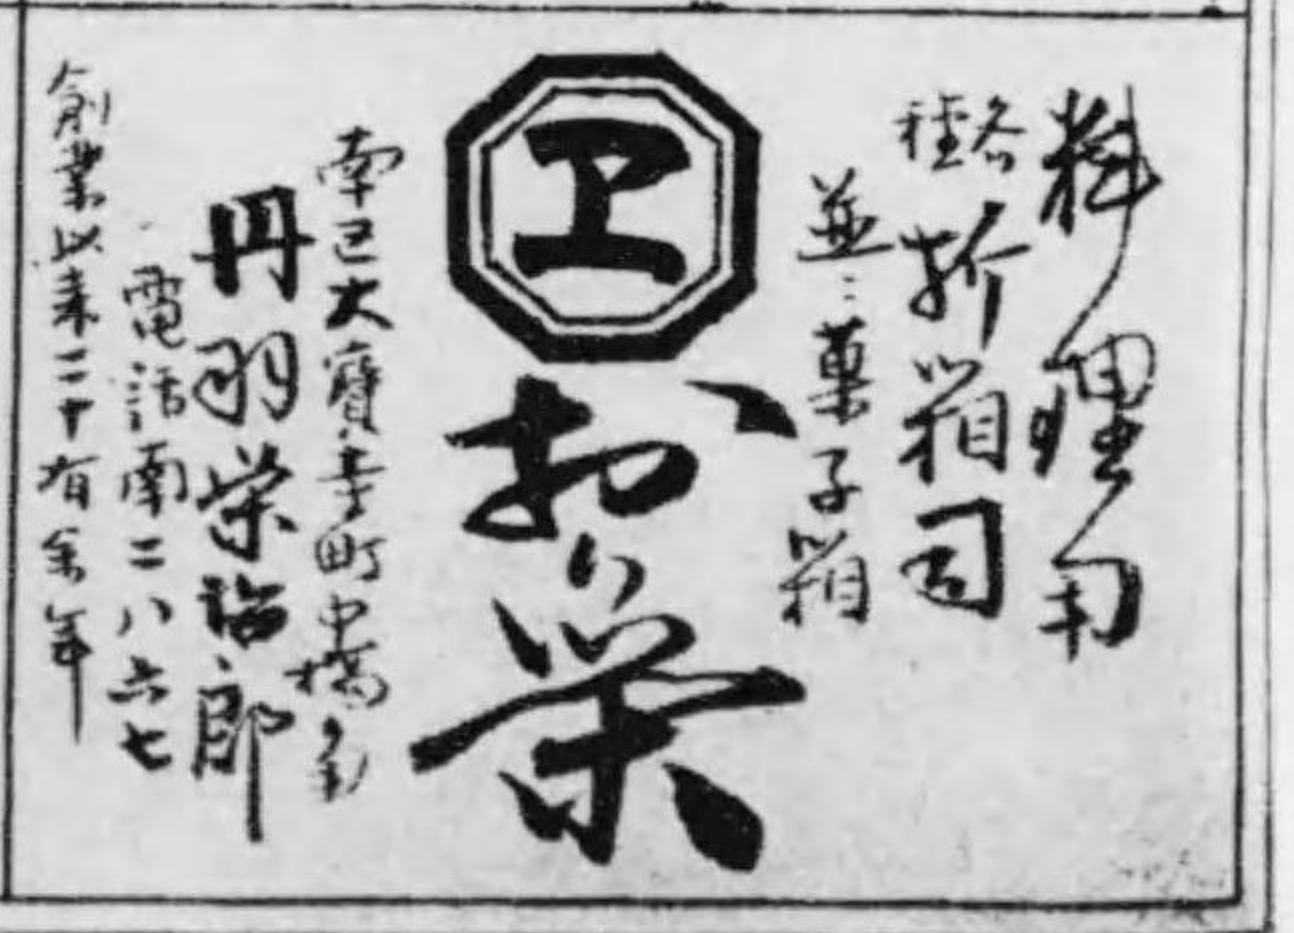 料理用
各種
折箱司
並ニ菓子箱
ヱ
おり栄
南区大寳寺町中橋角
丹羽栄治郎
電話南二八六七
創業以来二十有余年